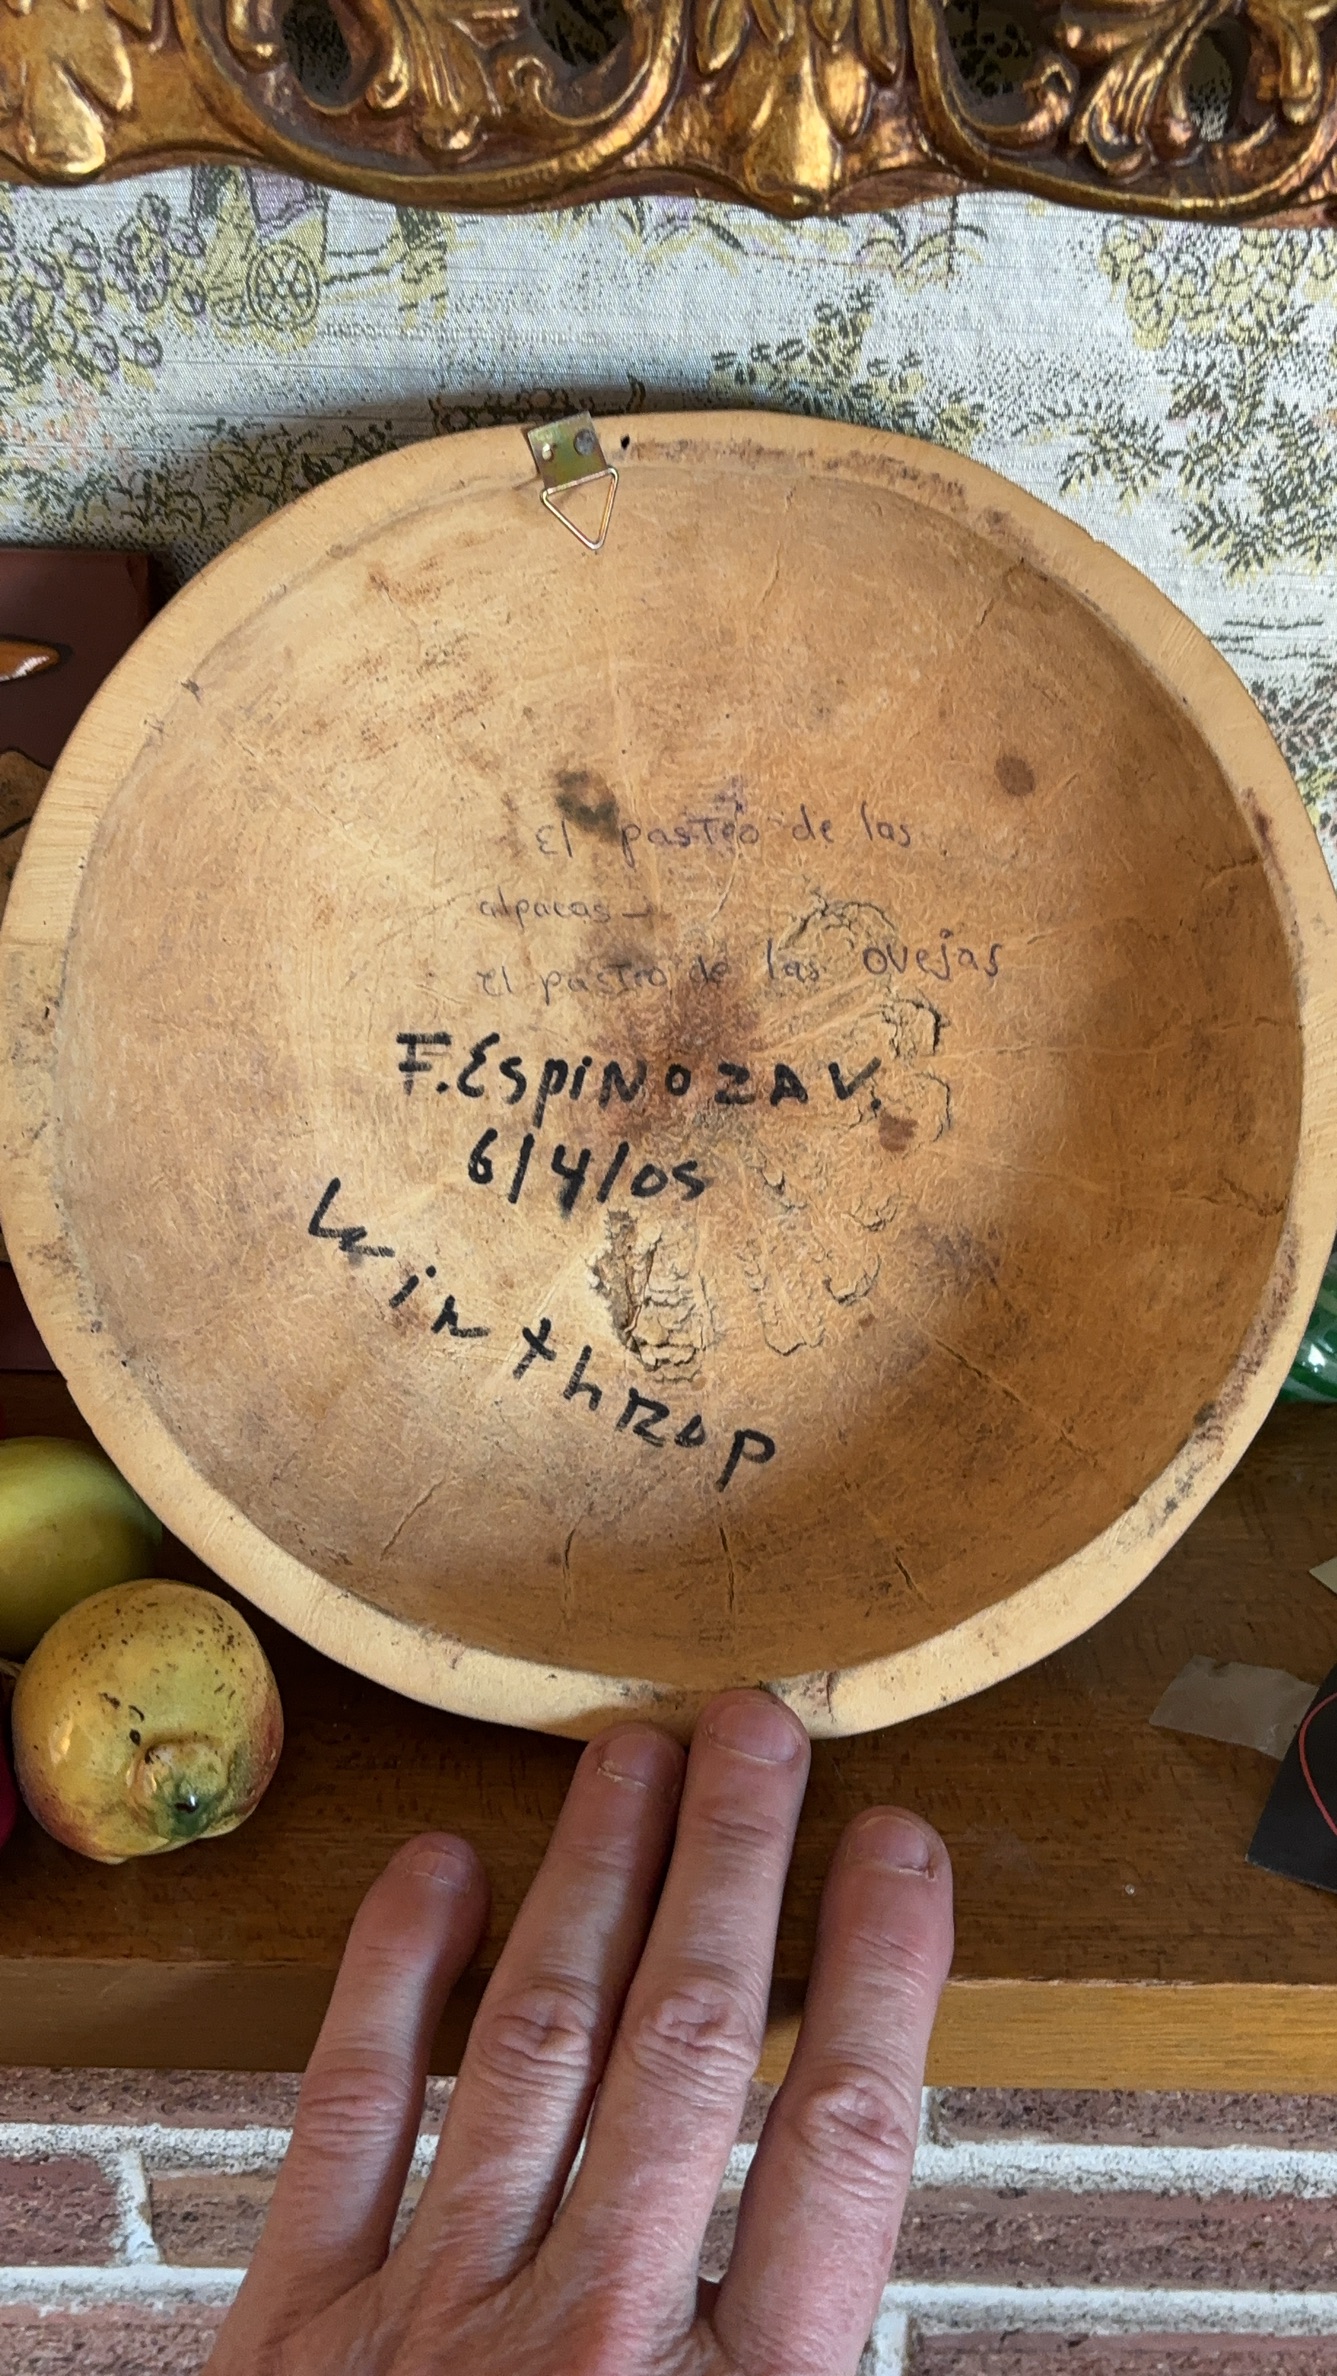 El pasteo de las
alpacas-
El pasteo de las ovejas
F. Espinoza V.
6/4/05
Winthrop